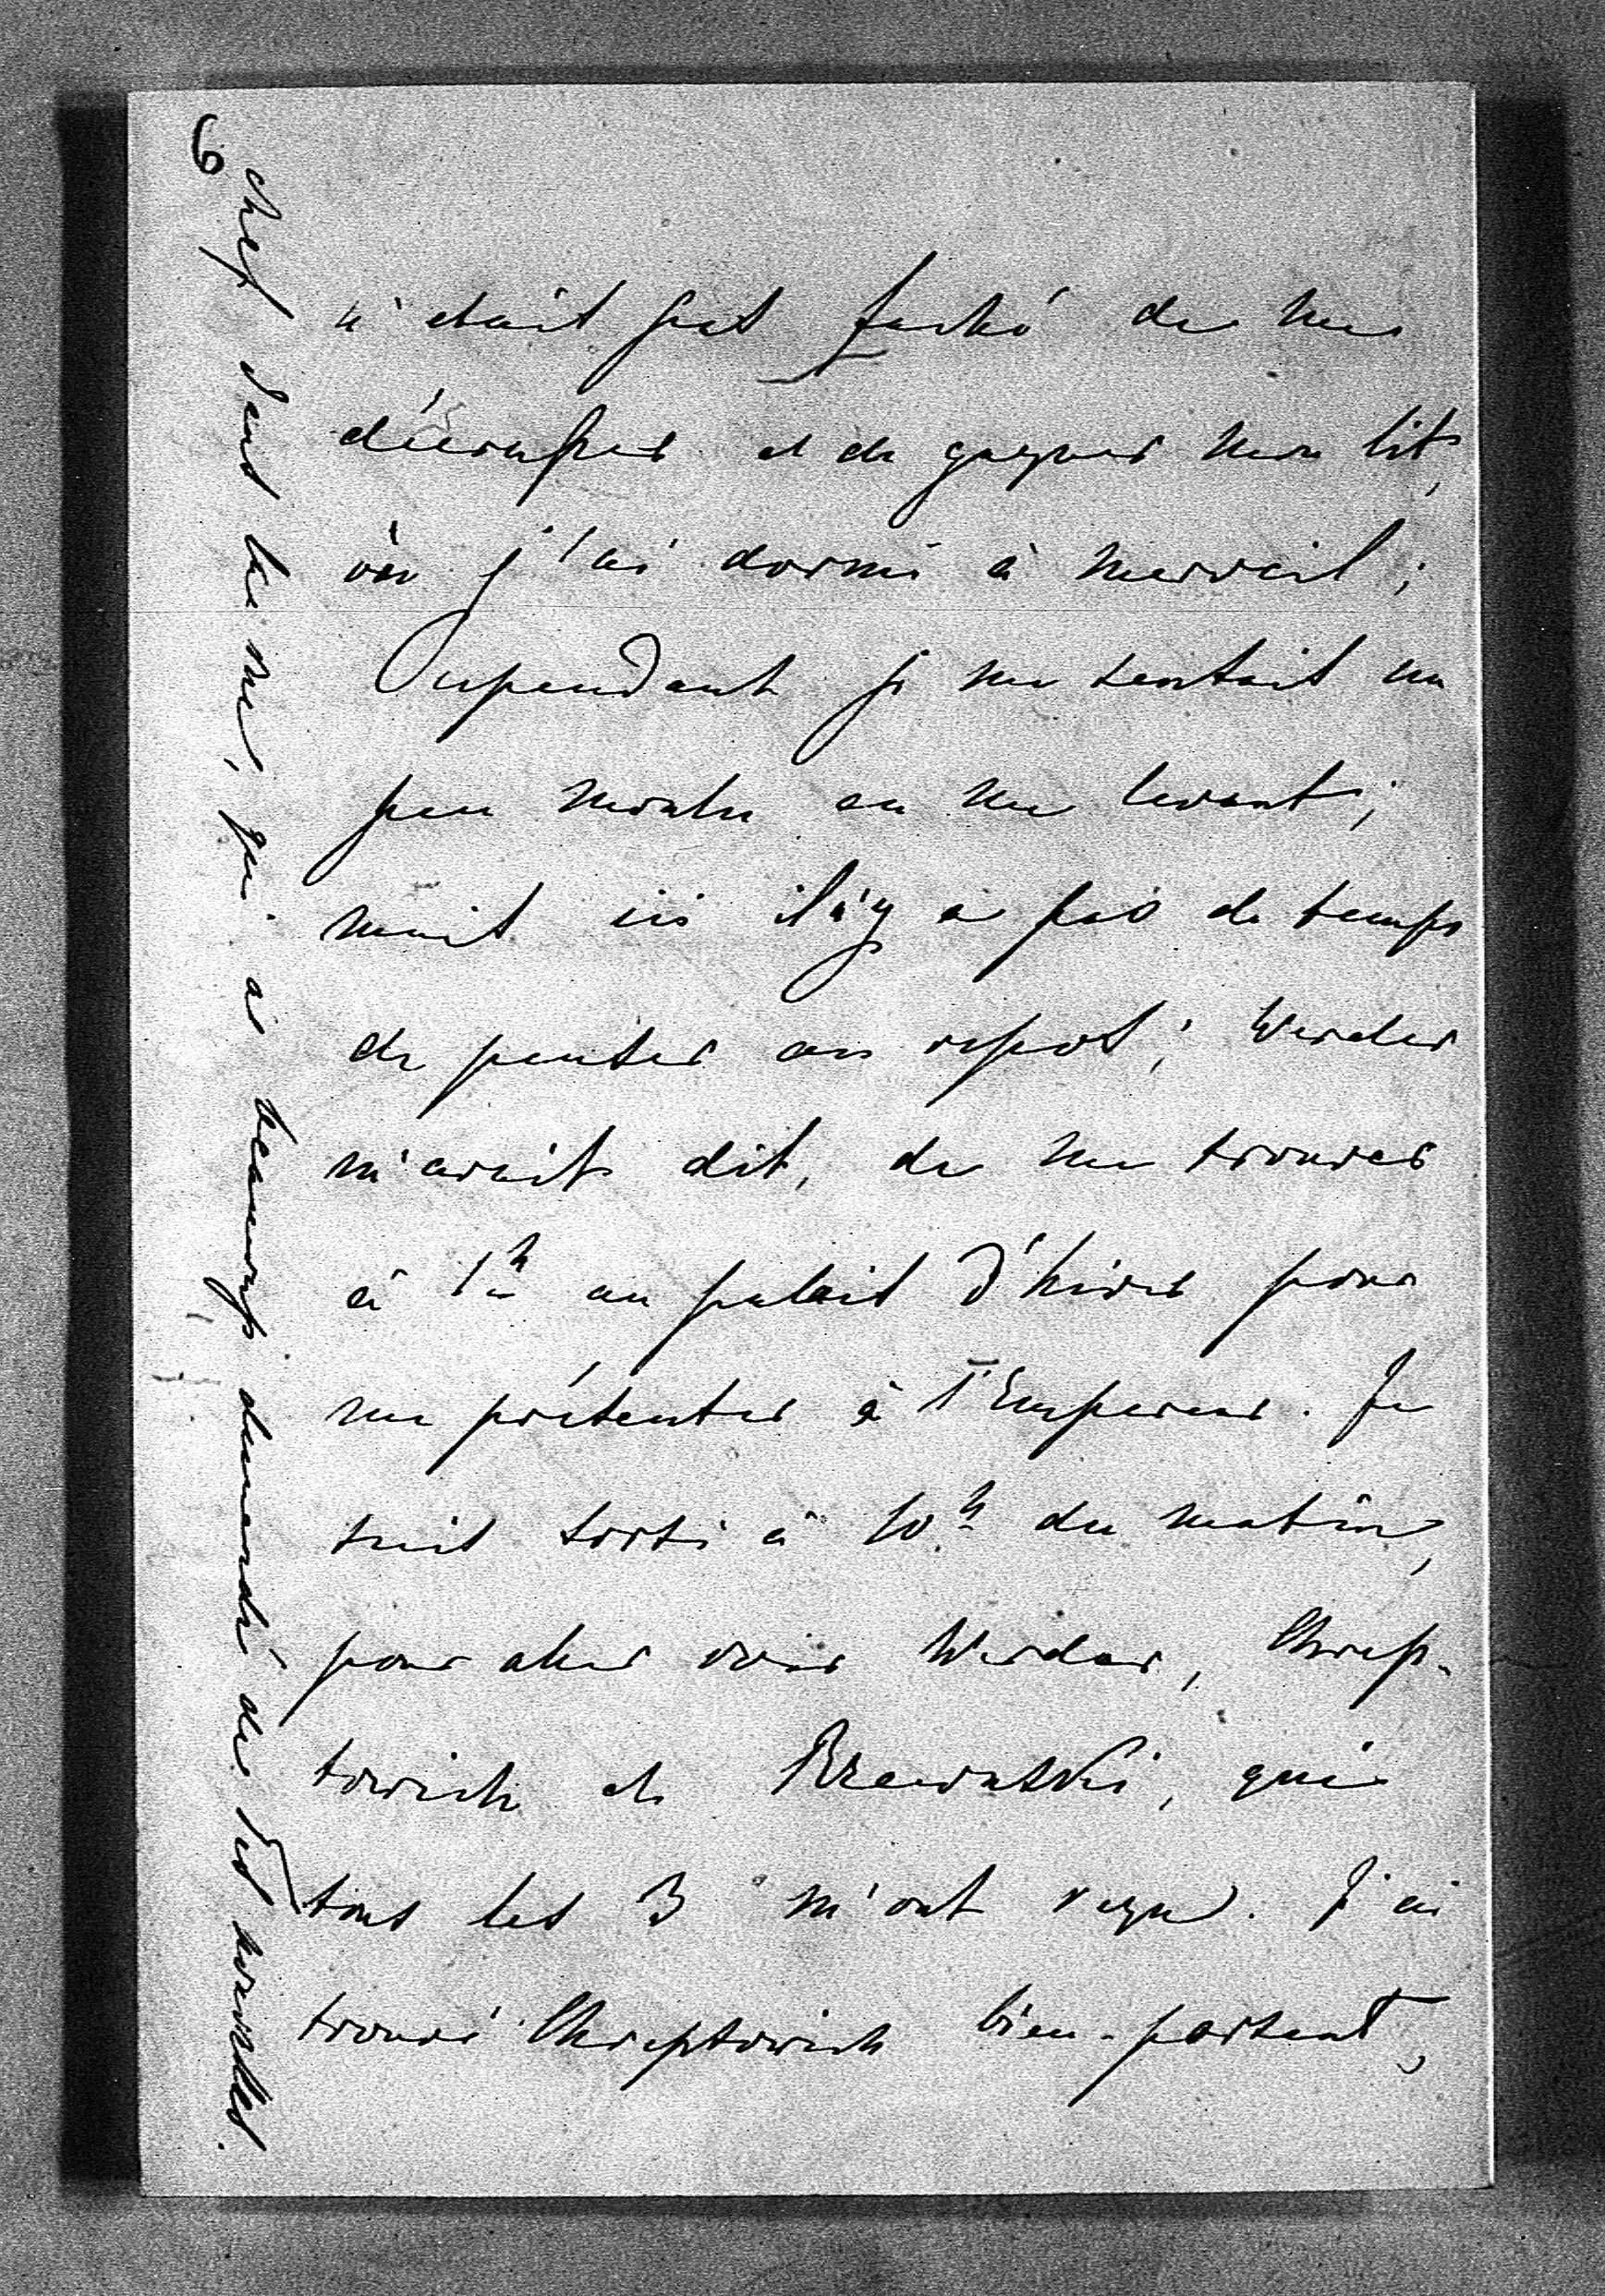 6
n'etait pas faché de me
décraper et de gagner mon lit,
òu j'ai dormi à merveil;
Cependant je me sentais un
peu moulu en me levant;
mais ici il n'y a pas de temps
de penser au repos; Werder
m'avait dit, de me trouver
à 1h au palais d'hiver pour
me présenter à l'Empereur. Je
suis sorti à 10h du matin,
pour aler voir Werder, Chrep-
towich et Rzewuski, qui
tous les 3 m'ont reçu. J'ai
trouvé Chreptowich bien-portant,
chef dans be me, qui a beaucoup demandé de Tes nouvelles.